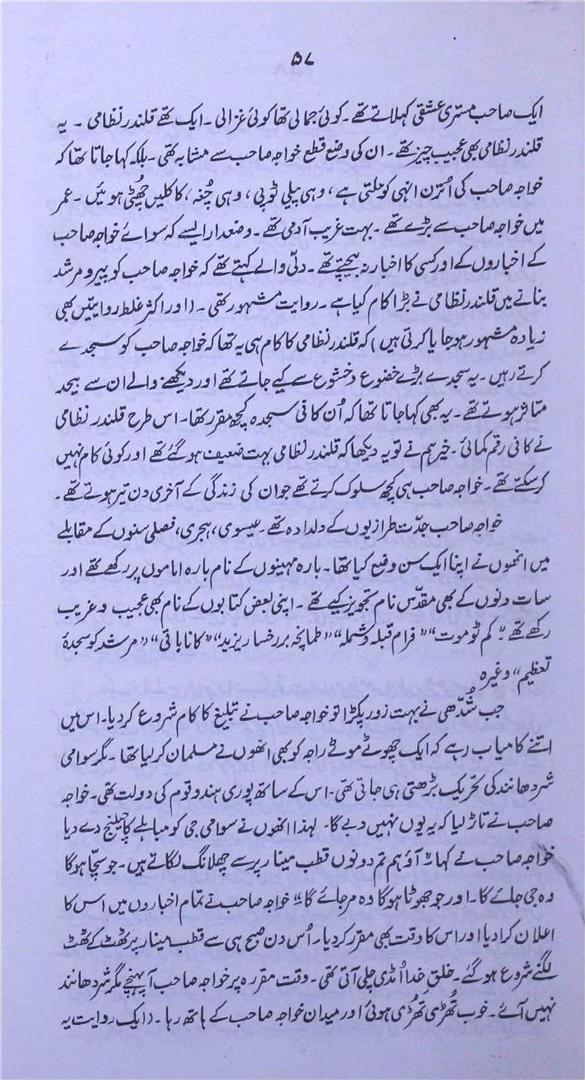 ۵۷
ایک صاحب مستری عشقی کہلاتے تھے ۔ کوئی جمالی تھا کوئی غزالی ۔ ایک تھے قلندر نظامی ۔ یہ
قلندر نظامی بھی عجیب چیز تھے ۔ ان کی وضع قطع خواجہ صاحب سے مشابہ تھی ۔ بلکہ کہا جاتا تھا کہ
خواجہ صاحب کی اُترن انہی کو ملتی ہے ، وہی پیلی ٹوپی ، وہی چُغہ ، کاکلیں چھٹی ہوئیں ۔ عمر
میں خواجہ صاحب سے بڑے تھے ۔ بہت غریب آدمی تھے ۔ وضعدار ایسے کہ سوائے خواجہ صاحب
کے اخباروں کے اور کسی کا اخبار نہ بیچتے تھے ۔ دلّی والے کہتے تھے کہ خواجہ صاحب کو پیر و مرشد
بنانے میں قلندر نظامی نے بڑا کام کیا ہے ۔ روایت مشہور تھی ۔ (اور اکثر غلط روایتیں بھی
زیادہ مشہور ہو جایا کرتی ہیں) کہ قلندر نظامی کا کام ہی یہ تھا کہ خواجہ صاحب کو سجدے
کرتے رہیں ۔ یہ سجدے بڑے خضوع و خشوع سے کیے جاتے تھے اور دیکھنے والے ان سے بیحد
متاثر ہوتے تھے ۔ یہ بھی کہا جاتا تھا کہ اُن کا فی سجدہ کچھ مقرر تھا ۔ اس طرح قلندر نظامی
نے کافی رقم کمائی ۔ خیر ہم نے تو یہ دیکھا کہ قلندر نظامی بہت ضعیف ہو گئے تھے اور کوئی کام نہیں
کر سکتے تھے ۔ خواجہ صاحب ہی کچھ سلوک کرتے تھے جو ان کی زندگی کے آخری دن تیر ہوتے تھے ۔
خواجہ صاحب جدّت طرازیوں کے دلدادہ تھے ۔ عیسوی ، ہجری ، فصلی سنوں کے مقابلے
میں انھوں نے اپنا ایک سن وضع کیا تھا ۔ بارہ مہینوں کے نام بارہ اماموں پر رکھے تھے اور
سات دنوں کے بھی مقدّس نام تجویز کیے تھے ۔ اپنی بعض کتابوں کے نام بھی عجیب و غریب
رکھے تھے ۔ "کم ٹو موت" "فرام قبلہ و شملہ" "طمانچہ بر رخسار یزید" "کانا باتی" "مرشد کو سجدۂ
تعظیم" وغیرہ
جب شُدّھی نے بہت زور پکڑا تو خواجہ صاحب نے تبلیغ کا کام شروع کر دیا ۔ اس میں
اتنے کامیاب رہے کہ ایک چھوٹے موٹے راجہ کو بھی انھوں نے مسلمان کر لیا تھا ۔ مگر سوامی
شردھانند کی تحریک بڑھتی ہی جاتی تھی ۔ اس کے ساتھ پوری ہندو قوم کی دولت تھی ۔ خواجہ
صاحب نے تاڑ لیا کہ یہ یوں نہیں دبے گا ۔ لہٰذا انھوں نے سوامی جی کو مباہلے کا چیلنج دے دیا
خواجہ صاحب نے کہا "آؤ ہم تم دونوں قطب مینار پر سے چھلانگ لگاتے ہیں ۔ جو سچا ہوگا
وہ جی جائے گا ۔ اور جو جھوٹا ہوگا وہ مر جائے گا" خواجہ صاحب نے تمام اخباروں میں اس کا
اعلان کرا دیا اور اس کا وقت بھی مقرر کر دیا ۔ اُس دن صبح ہی سے قطب مینار پر ٹھٹ کے ٹھٹ
لگنے شروع ہو گئے ۔ خلق خدا اُنڈی چلی آتی تھی ۔ وقت مقررہ پر خواجہ صاحب آ پہنچے مگر شردھانند
نہیں آئے ۔ خوب تُھڑی تُھڑی ہوئی اور میدان خواجہ صاحب کے ہاتھ رہا ۔ (ایک روایت یہ